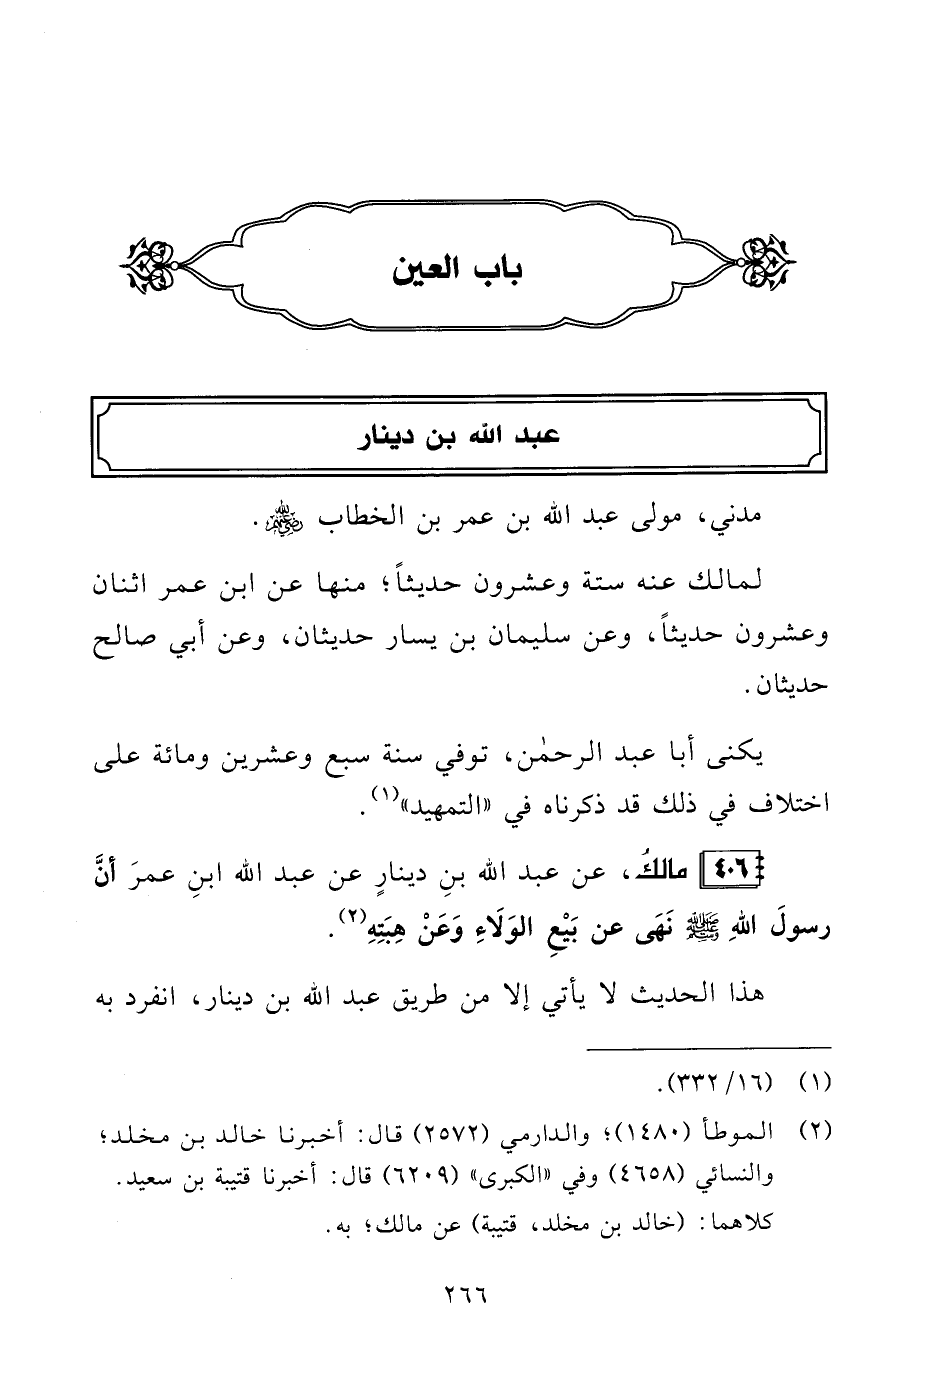 باب العين
عبد الله بن دينار
مدني، مولى عبد الله بن عمر بن الخطاب ﷺ.
لمالك عنه ستة وعشرون حديثاً؛ منها عن ابن عمر اثنان
وعشرون حديثاً، وعن سليمان بن يسار حديثان، وعن أبي صالح
حديثان.
يكنى أبا عبد الرحمٰن، توفي سنة سبع وعشرين ومائة على
اختلاف في ذلك قد ذكرناه في «التمهيد»(١).
٤٠٦ مالكُ، عن عبد الله بنِ دينارٍ عن عبد الله ابنِ عمرَ أنَّ
رسولَ اللهِ ﷺ نَهَى عن بَيْعِ الوَلَاءِ وَعَنْ هِبَتِهِ(٢).
هذا الحديث لا يأتي إلا من طريق عبد الله بن دينار، انفرد به
(١) (١٦/ ٣٣٢).
(٢) الموطأ (١٤٨٠)؛ والدارمي (٢٥٧٢) قال: أخبرنا خالد بن مخلد؛
والنسائي (٤٦٥٨) وفي «الكبرى» (٦٢٠٩) قال: أخبرنا قتيبة بن سعيد.
كلاهما: (خالد بن مخلد، قتيبة) عن مالك؛ به.
٢٦٦